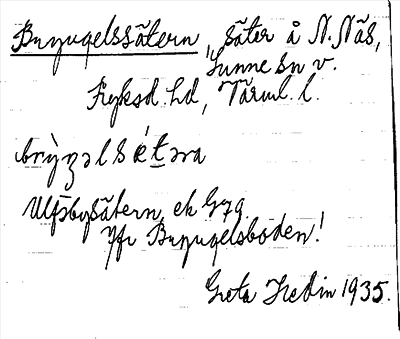 Bryngelssätern, säter å N. Näs,
Sunne sn v.
Fryksd. hd, Värml. l.
Ulfsbysätern ek G79.
Jfr Bryngelsboden!
Greta Hedin 1935.